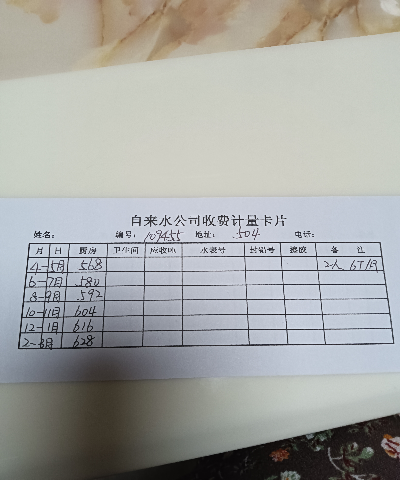 自来水公司收费计量卡片
姓名: 编号: 109455 地址: 504 电话:
月 日 厨房 卫生间 应收吨 水表号 封铅号 滤波 备 注
4-5月 568 2人 6T/月
6-7月 580
8-9月 592
10-11月 604
12-1月 616
2-3月 628